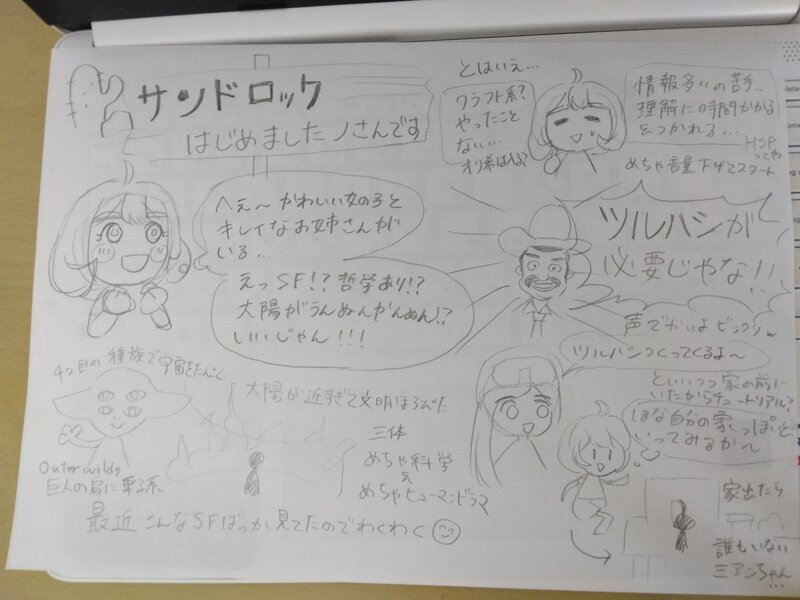 サンドロック
はじめました ノさんです
へぇ〜 かわいい女の子と
キレイなお姉さんが
いる…
えっSF!? 哲学あり!?
太陽がうんぬんかんぬん!?
いいじゃん!!!
4つ目の種族で宇宙をたんさく
Outer wilds
巨人の肩に乗る系
太陽が近すぎて文明ほろびた
三体
めちゃ科学
&
めちゃヒューマンドラマ
最近 こんなSFばっか見てたのでわくわく
とはいえ…
クラフト系?
やったこと
ない…
情報多いの苦手…
理解に時間かかる
&つかれる…
HSP
ってやつ
めちゃ音量下げてスタート
ツルハシが
必要じゃな!!
声でかいよ ビックリw
ツルハシつくってくるよ〜
といいつつ 家の前に
いたからチュートリアル?
自分の家っぽいとこ
いってみるか〜
家出たら
誰もいない
ミアンちゃん…